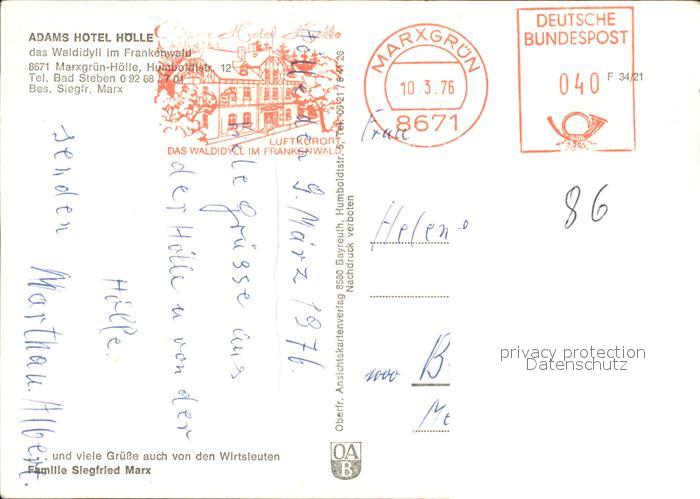 ADAMS HOTEL HÖLLE
das Waldidyll im Frankenwald
8671 Marxgrün-Hölle, Humboldtstr. 12
Tel. Bad Steben 0 92 88
Bes. Siegfr. Marx
Adams Hotel Hölle
LUFTKURORT
DAS WALDIDYLL IM FRANKENWALD
MARXGRÜN
10 3.76
8671
DEUTSCHE
BUNDESPOST
040
F 34/21
Hölle den 9. März 1976.
Viele Grüsse aus
der Hölle u von der
Hölle.
senden
Martha u. Albert.
... und viele Grüße auch von den Wirtsleuten
Familie Siegfried Marx
Oberfr. Ansichtskartenverlag 8580 Bayreuth, Humboldtstr. 5, Tel. 09 21 / 6 41 26
Nachdruck verboten
OA
B
Frau
Helen
86
1000 B
privacy protection
Datenschutz